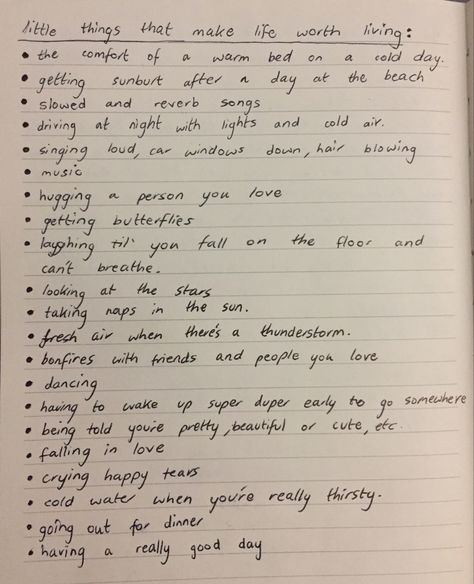 little things that make life worth living:
• the comfort of a warm bed on a cold day.
• getting sunburt after a day at the beach
• slowed and reverb songs
• driving at night with lights and cold air.
• singing loud, car windows down, hair blowing
• music
• hugging a person you love
• getting butterflies
• laughing til' you fall on the floor and
can't breathe.
• looking at the stars
• taking naps in the sun.
• fresh air when there's a thunderstorm.
• bonfires with friends and people you love
• dancing
• having to wake up super duper early to go somewhere
• being told you're pretty, beautiful or cute, etc.
• falling in love
• crying happy tears
• cold water when you're really thirsty.
• going out for dinner
• having a really good day